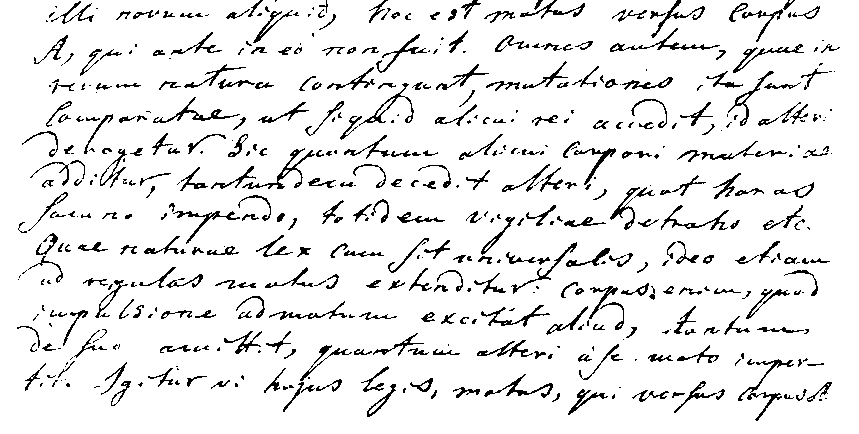 illi novum aliquid, hoc est motus versus Corpus
A, qui ante in eo non fuit. Omnes autem, quae in
rerum natura contingunt, mutationes ita sunt
Comparatae, ut siquid alicui rei accedit, id alteri
derogetur. Sic quantum alicui Corpori materiae
additur, tantundem decedit alteri, quot horas
somno impendo, totidem vigiliae detraho etc.
Quae naturae lex cum sit universalis, ideo etiam
ad regulas motus extenditur: Corpus enim, quod
impulsione ad motum excitat aliud, tantum
de suo amittit, quantum alteri à se moto imper-
tit. Igitur vi hujus legis, motus, qui versus Corpus A